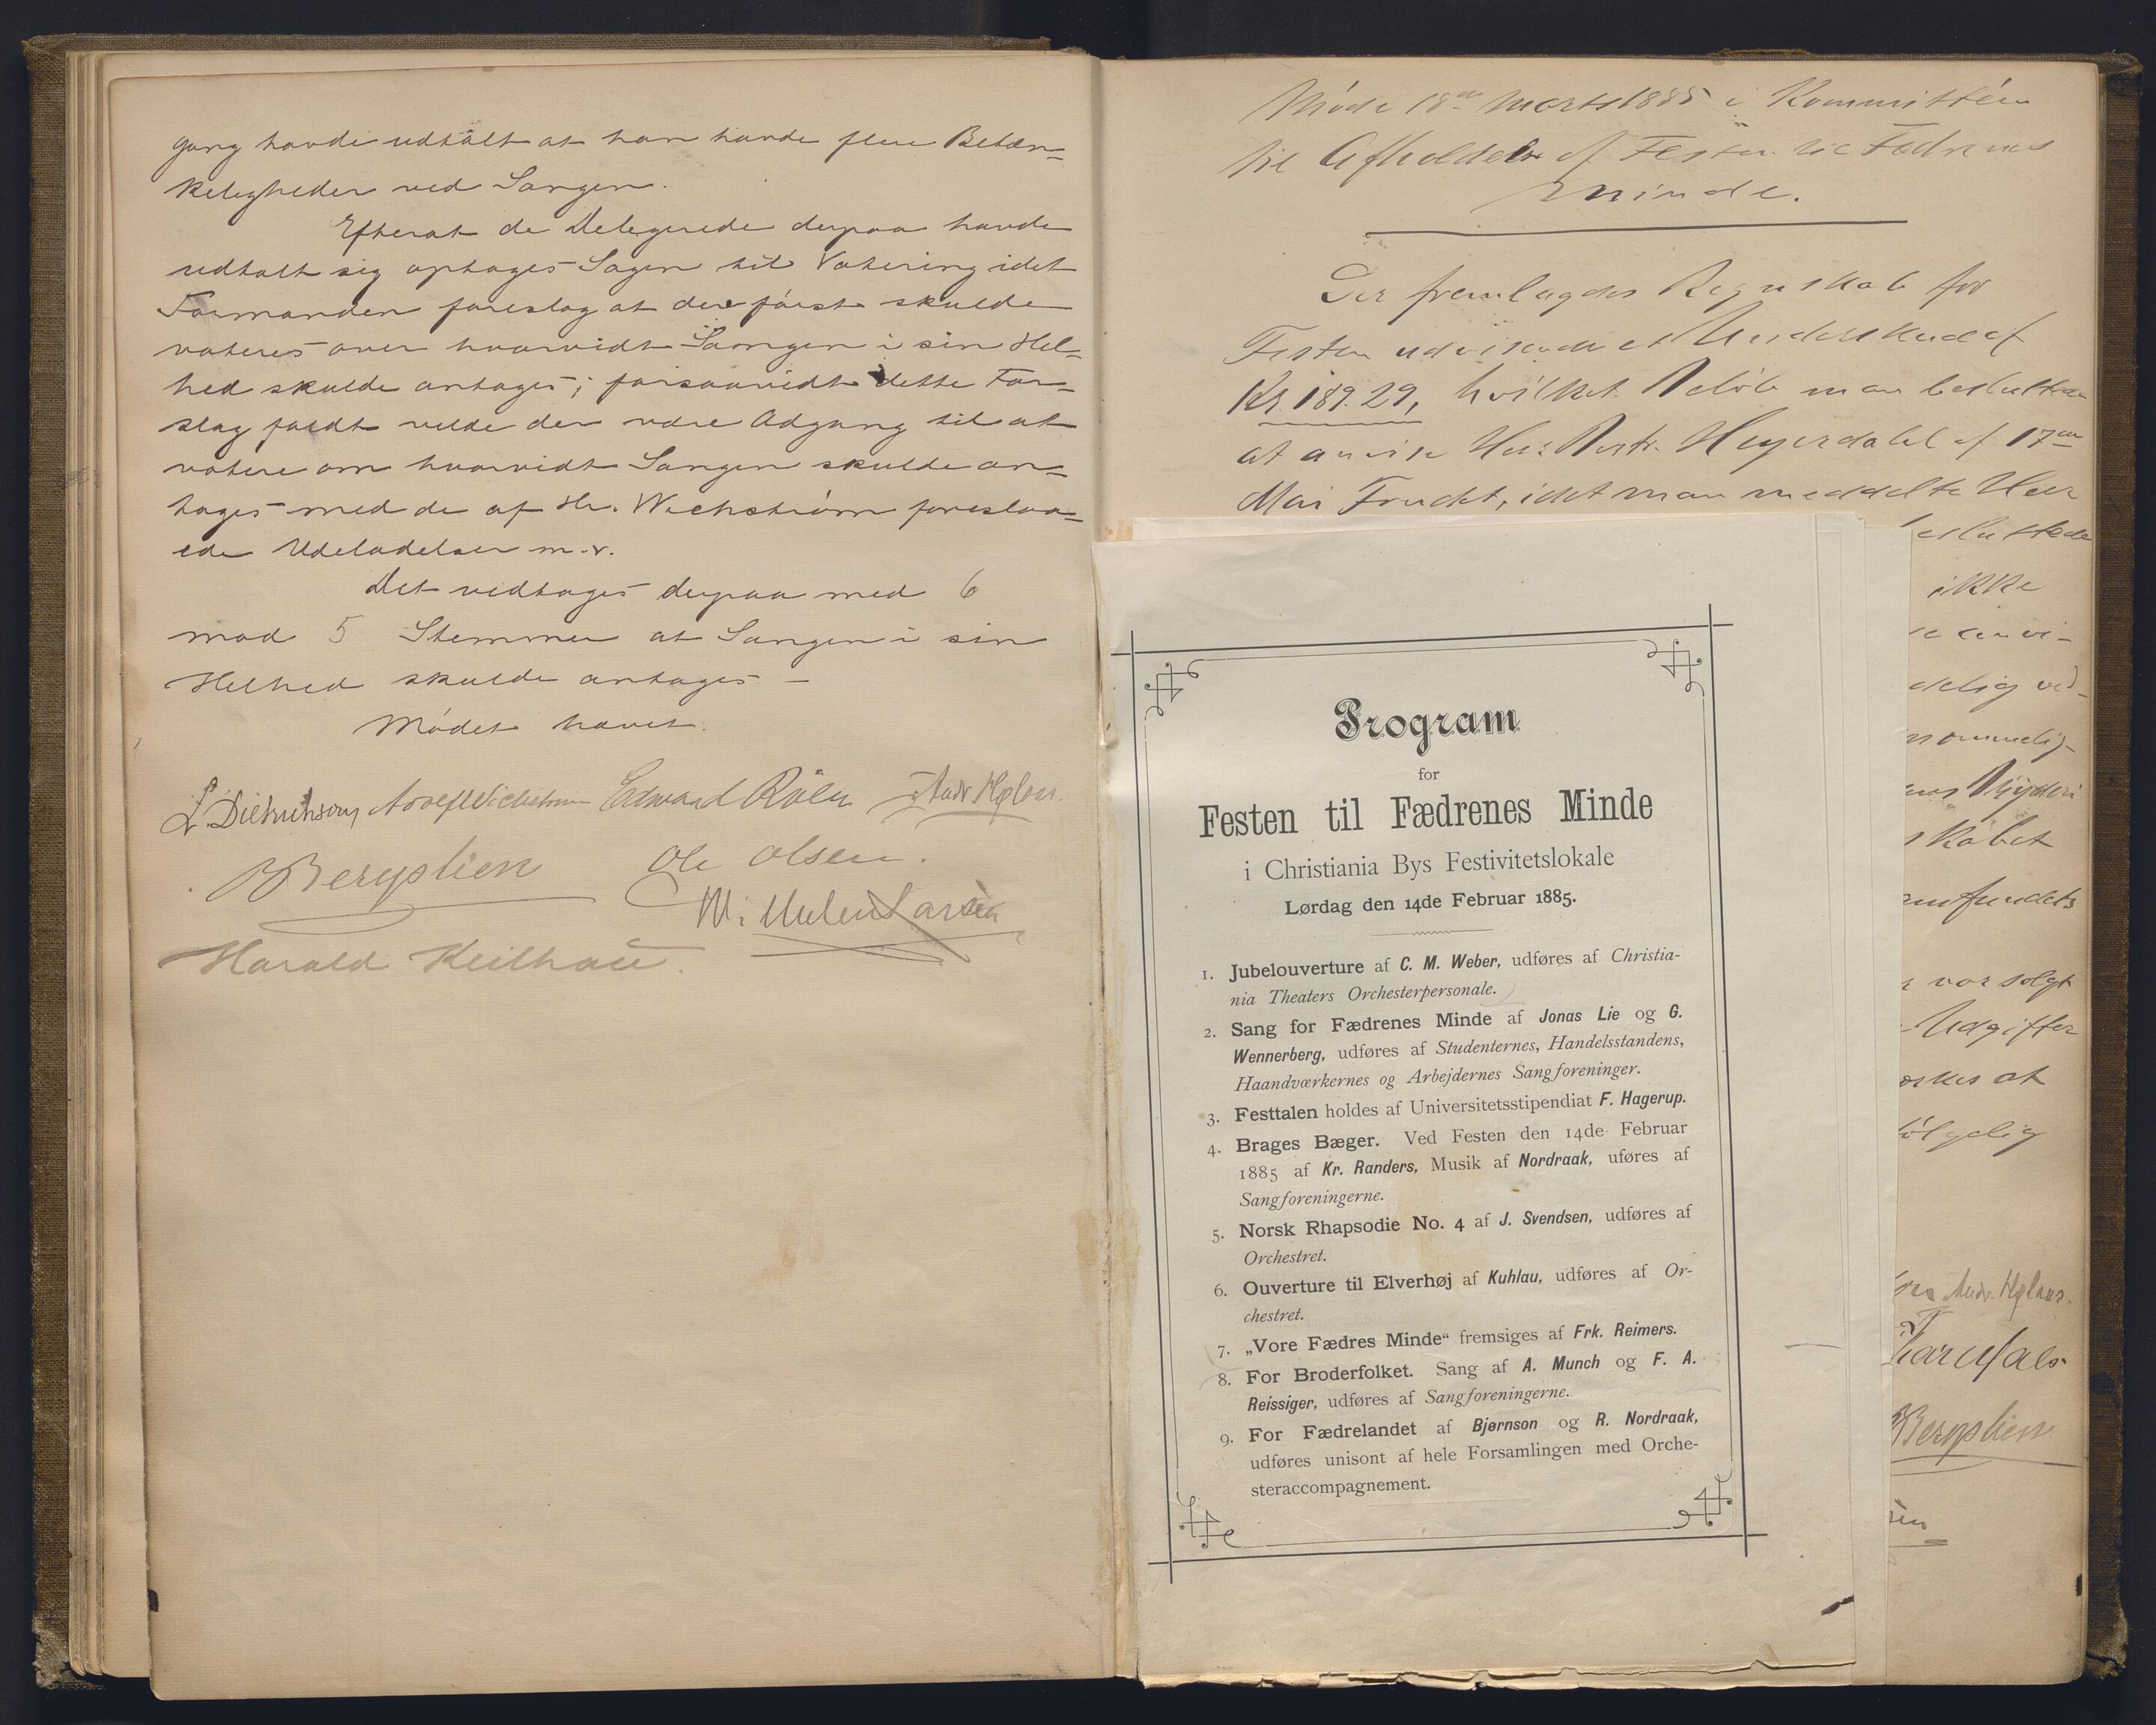 gang havde udtalt at han havde flere Betæn-
keligheder ved Sangen.
Efterat de Delegerede derpaa havde
udtalt sig optoges Sagen til Votering idet
Formanden foreslog at der først skulde
voteres over hvorvidt Sangen i sin Hel-
hed skulde antages; forsaavidt dette For-
slag faldt vilde der være Adgang til at
votere om hvorvidt Sangen skulde an-
tages med de af Hr. Wichstrøm foreslaa-
ede Udeladelser m.v.
Det vedtoges derpaa med 6
mod 5 Stemmer at Sangen i sin
Helhed skulde antages –
Mødet hævet.
L. Dietrichson Edvard Andr.
Bergslien Ole Olsen.
Larsen
Harald Keilhau.
Møde 18de Marts 1885 i Kommittéen
til Afholdelse af Festen til Fædrenes
Minde.
Der fremlagdes Regnskab for
Festen udvisende et Underskud af
Kr. 189.29, hvilket Beløb man besluttede
at anvise Herr Heyerdahl af 17de
Mai Fondet, idet man meddelte Herr
esluttede
ikke
delig ved-
skabet
amfundets
var solgt
Udgifter
ønskes at
følgelig
Andr.
Bergslien
sen
Program
for
Festen til Fædrenes Minde
i Christiania Bys Festivitetslokale
Lørdag den 14de Februar 1885.
1. Jubelouverture af C. M. Weber, udføres af Christia-
nia Theaters Orchesterpersonale.
2. Sang for Fædrenes Minde af Jonas Lie og G.
Wennerberg, udføres af Studenternes, Handelsstandens,
Haandværkernes og Arbejdernes Sangforeninger.
3. Festtalen holdes af Universitetsstipendiat F. Hagerup.
4. Brages Bæger. Ved Festen den 14de Februar
1885 af Kr. Randers, Musik af Nordraak, uføres af
Sangforeningerne.
5. Norsk Rhapsodie No. 4 af J. Svendsen, udføres af
Orchestret.
6. Ouverture til Elverhøj af Kuhlau, udføres af Or-
chestret.
7. „Vore Fædres Minde“ fremsiges af Frk. Reimers.
8. For Broderfolket. Sang af A. Munch og F. A.
Reissiger, udføres af Sangforeningerne.
9. For Fædrelandet af Bjørnson og R. Nordraak,
udføres unisont af hele Forsamlingen med Orche-
steraccompagnement.